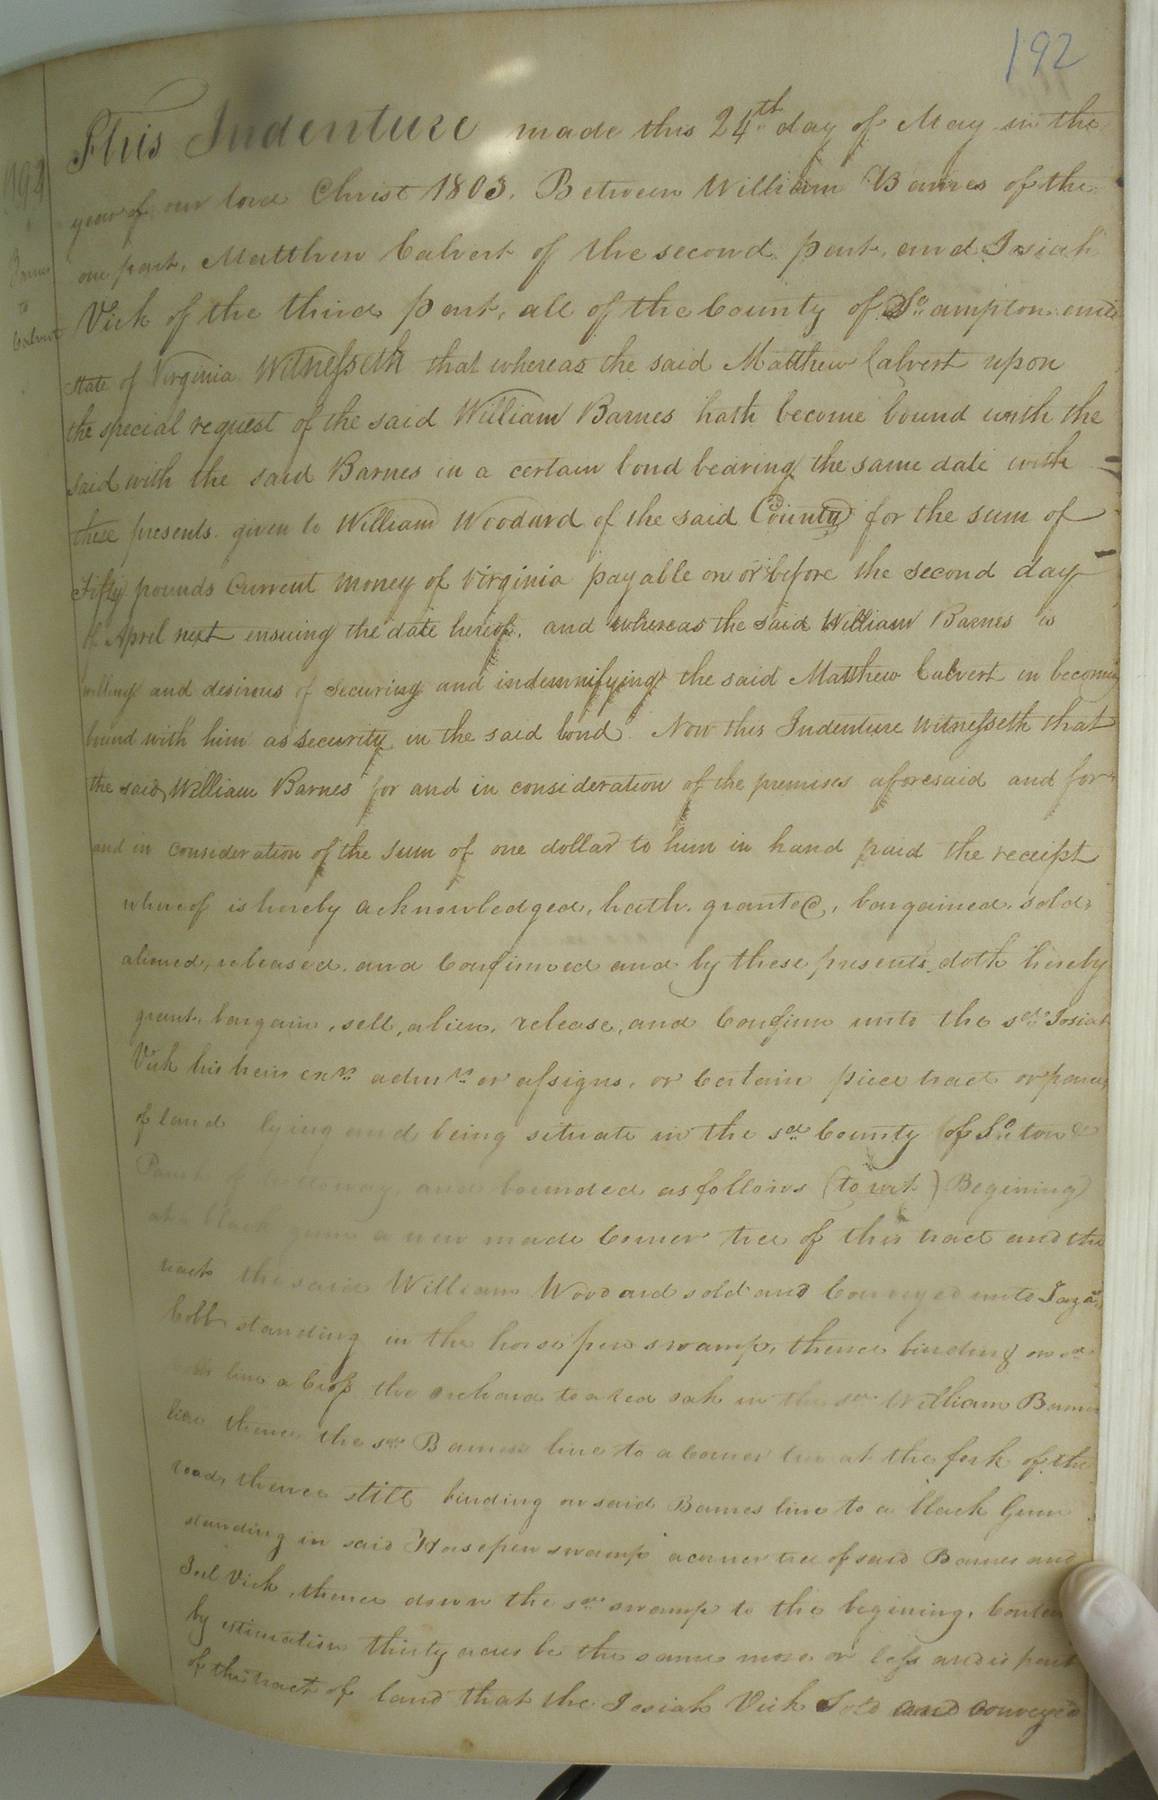 192
This Indenture made this 24th day of May in the
year of our lord Christ 1803. Between William Barnes of the
one part, Matthew Calvert of the second part, and Josiah
Vick of the third part, all of the County of So.ampton and
State of Virginia Witnesseth that whereas the said Matthew Calvert upon
the special request of the said William Barnes hath become bound with the
said with the said Barnes in a certain bond bearing the same date with
these presents given to William Woodard of the said County for the sum of
Fifty pounds Current money of Virginia payable on or before the second day
of April next ensuing the date hereof, and whereas the said William Barnes is
willing and desirous of securing and indemnifying the said Matthew Calvert in becoming
bound with him as security in the said bond. Now this Indenture Witnesseth that
the said William Barnes for and in consideration of the premises aforesaid and for
and in consideration of the sum of one dollar to him in hand paid the receipt
whereof is hereby acknowledged, hath granted, bargained, sold,
aliened, released, and Confirmed and by these presents doth hereby
grant, bargain, sell, alien, release, and Confirm unto the sd. Josiah
Vick his heirs exrs. admrs. or assigns, or Certain piece tract or parcel
of land lying and being situate in the sd. County of So.ton &
Parish of and bounded as follows (to wit) Begining
at a black gum a new made Corner tree of this tract and the
tract the said William Woodard sold and Conveyed unto
Cobb standing in the horsepen swamp, thence binding on sd
line a Cross the orchard to a red oak in the sd. William Barnes
line thence the sd. Barnes line to a corner tree at the fork of the
road, thence still binding on said Barnes line to a black Gum
standing in said Horsepen swamp a corner tree of said Barnes and
Joel Vick, thence down the sd. swamp to the begining, Contain
by estimation thirty acres be the same more or less and is part
of the tract of land that the Josiah Vick Sold and conveyed
192
Barnes
to
Calvert